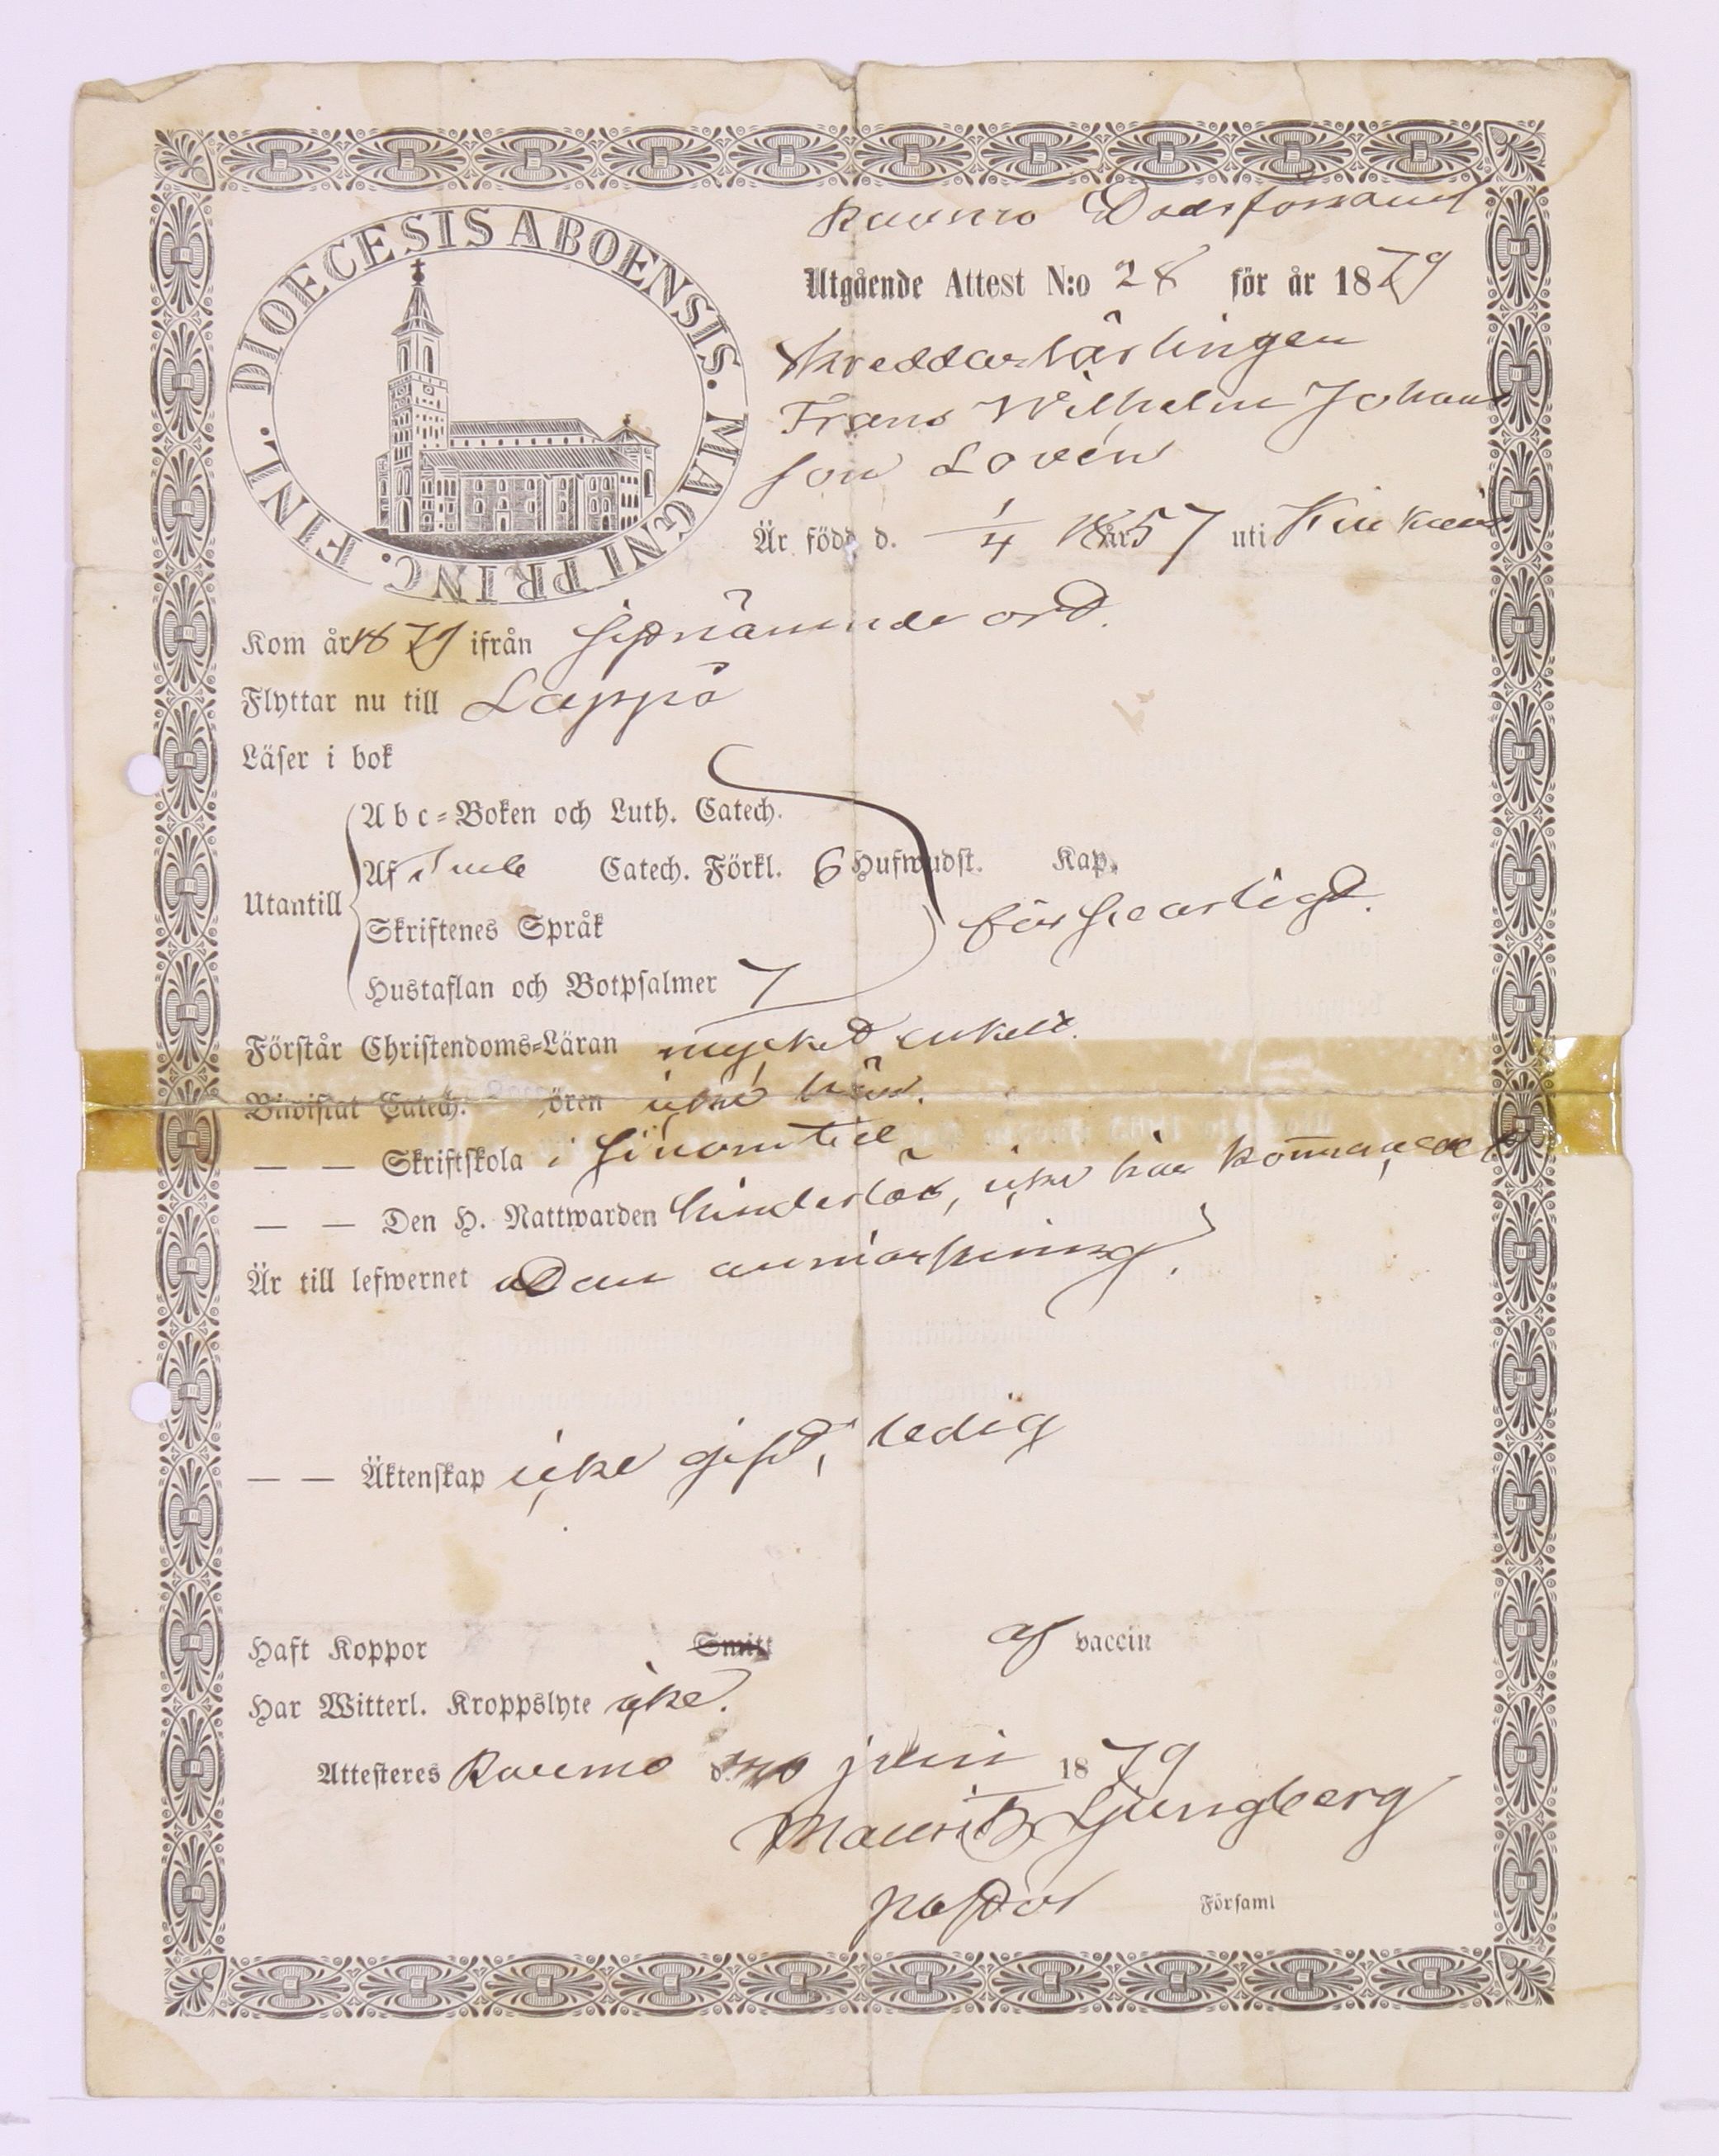 DIOECESIS ABOENSIS. MAGNI PRINC. FINL.
Raumo Stadsförsaml
Utgående Attest N:o 28 för år 1879
Skreddarlärlingen
Frans Wilhelm Johans
son Lovén
Är född d. 1/4 18 år 57 uti
Kom år 1879 ifrån sistnämnde ort.
Flyttar nu till Lappo
Läser i bok
Abc-Boken och Luth. Catech.
Af Catech. Förkl. 6 Hufwudst. Kap.
Utantill försvarligt.
Skriftenes Språk
Hustaflan och Botpsalmer 7
Förstår Christendoms-Läran mycket enkelt.
Biwistat Catech. ören icke här.
— — Skriftskola i sinom tid
— — Den H. Nattwarden hinderlös, icke här
Är till lefwernet utan anmärkning.
— — Äktenskap icke gift, ledig
Haft Koppor Smitt af vaccin
Har Witterl. Kroppslyte icke.
Attesteres Raumo d. juni 1879
Mauritz Ljungberg
pastor Församl